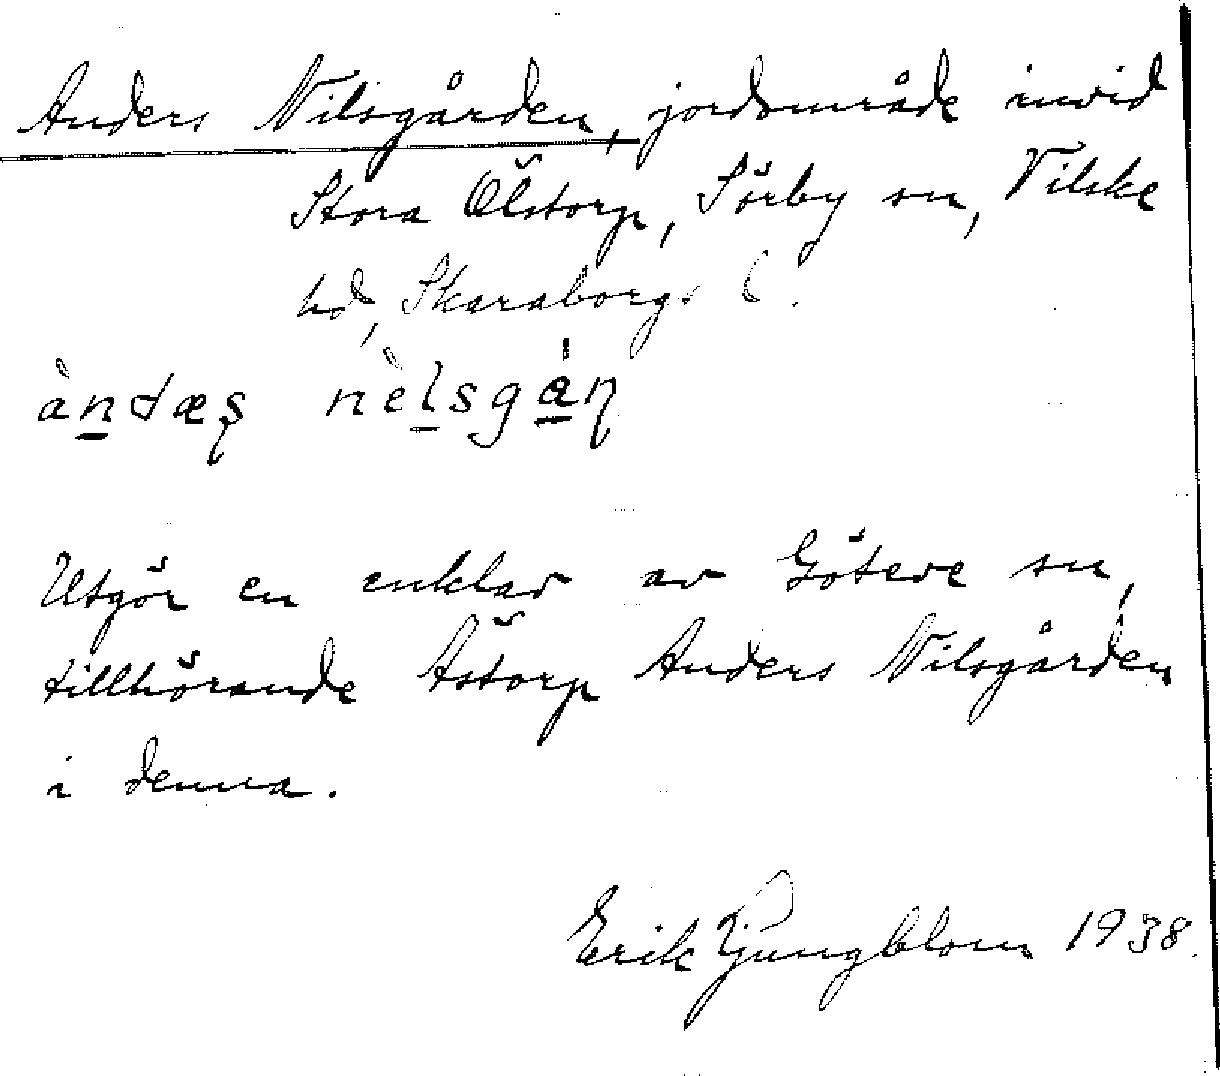 Anders Nilsgården, jordområde invid
Stora Ölstorp, Sörby sn, Vilske
hd, Skaraborgs l.
àndæş nèlsgán
Utgör en enklav av Göteve sn,
tillhörande Åstorp Anders Nilsgården
i denna.
Erik Ljungblom 1938.